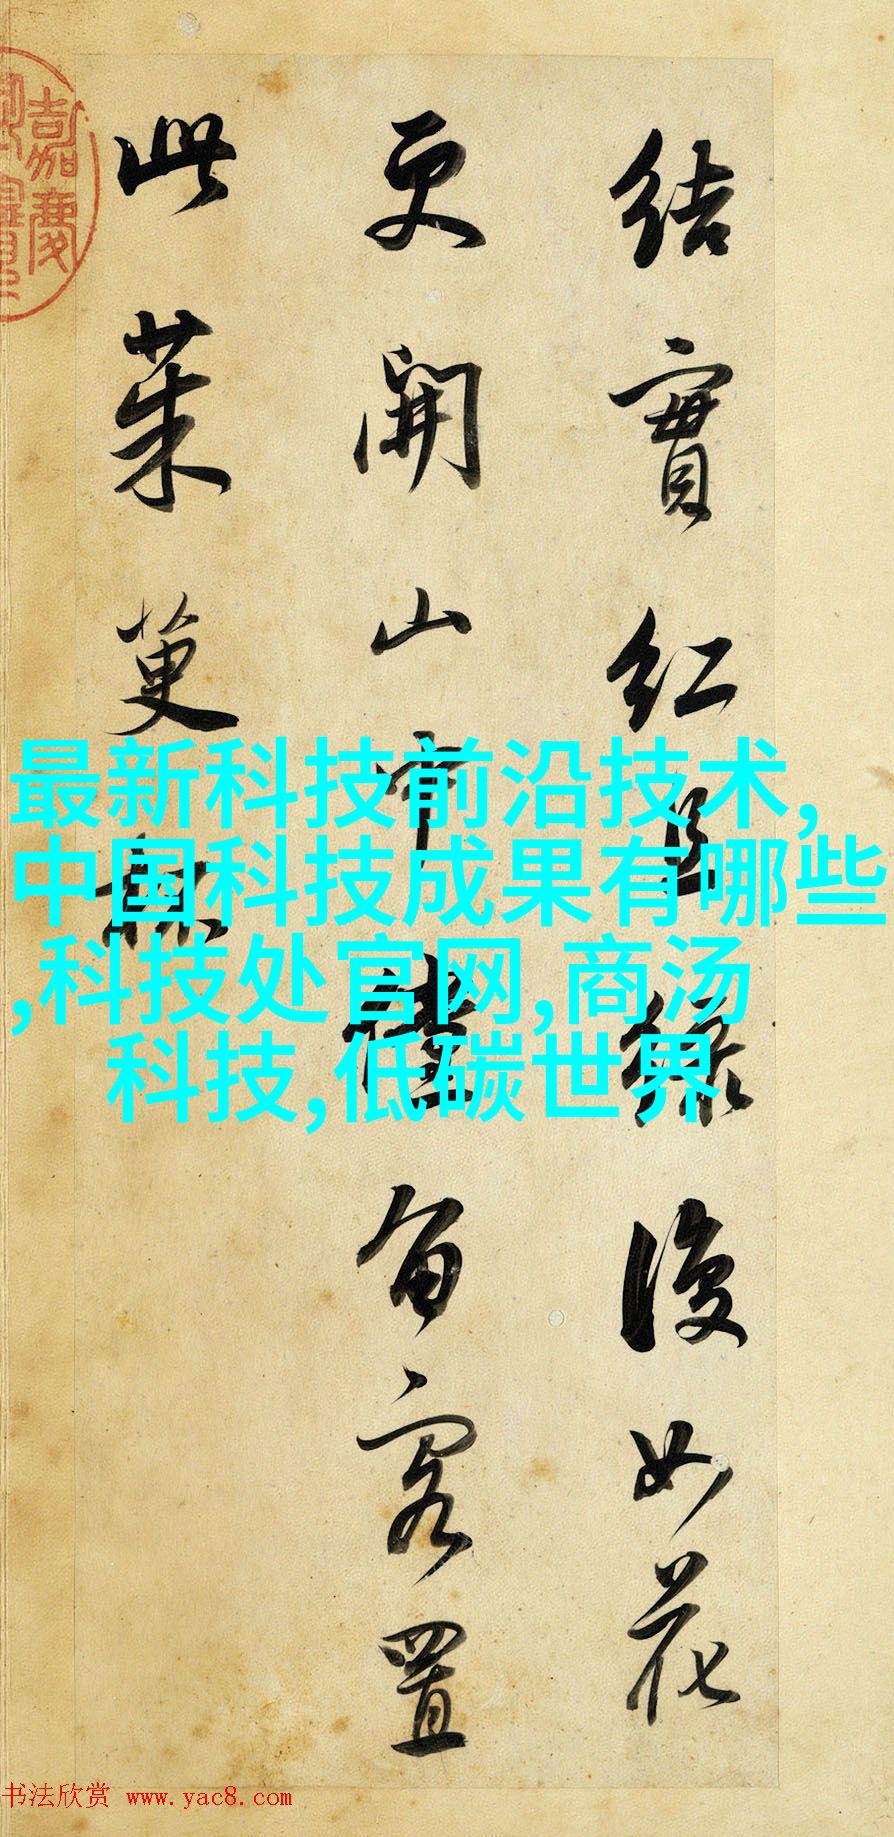 結實紅且綠復如花
更開山中儻留客置
此茱萸
嘉慶
最新科技前沿技术,
中国科技成果有哪些
,科技处官网,商汤
科技,低碳世界
书法欣赏 www.yac8.com